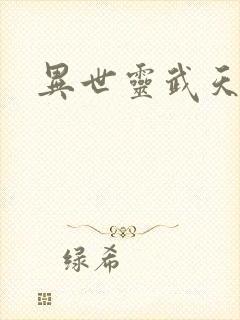 異世靈武天
绿希